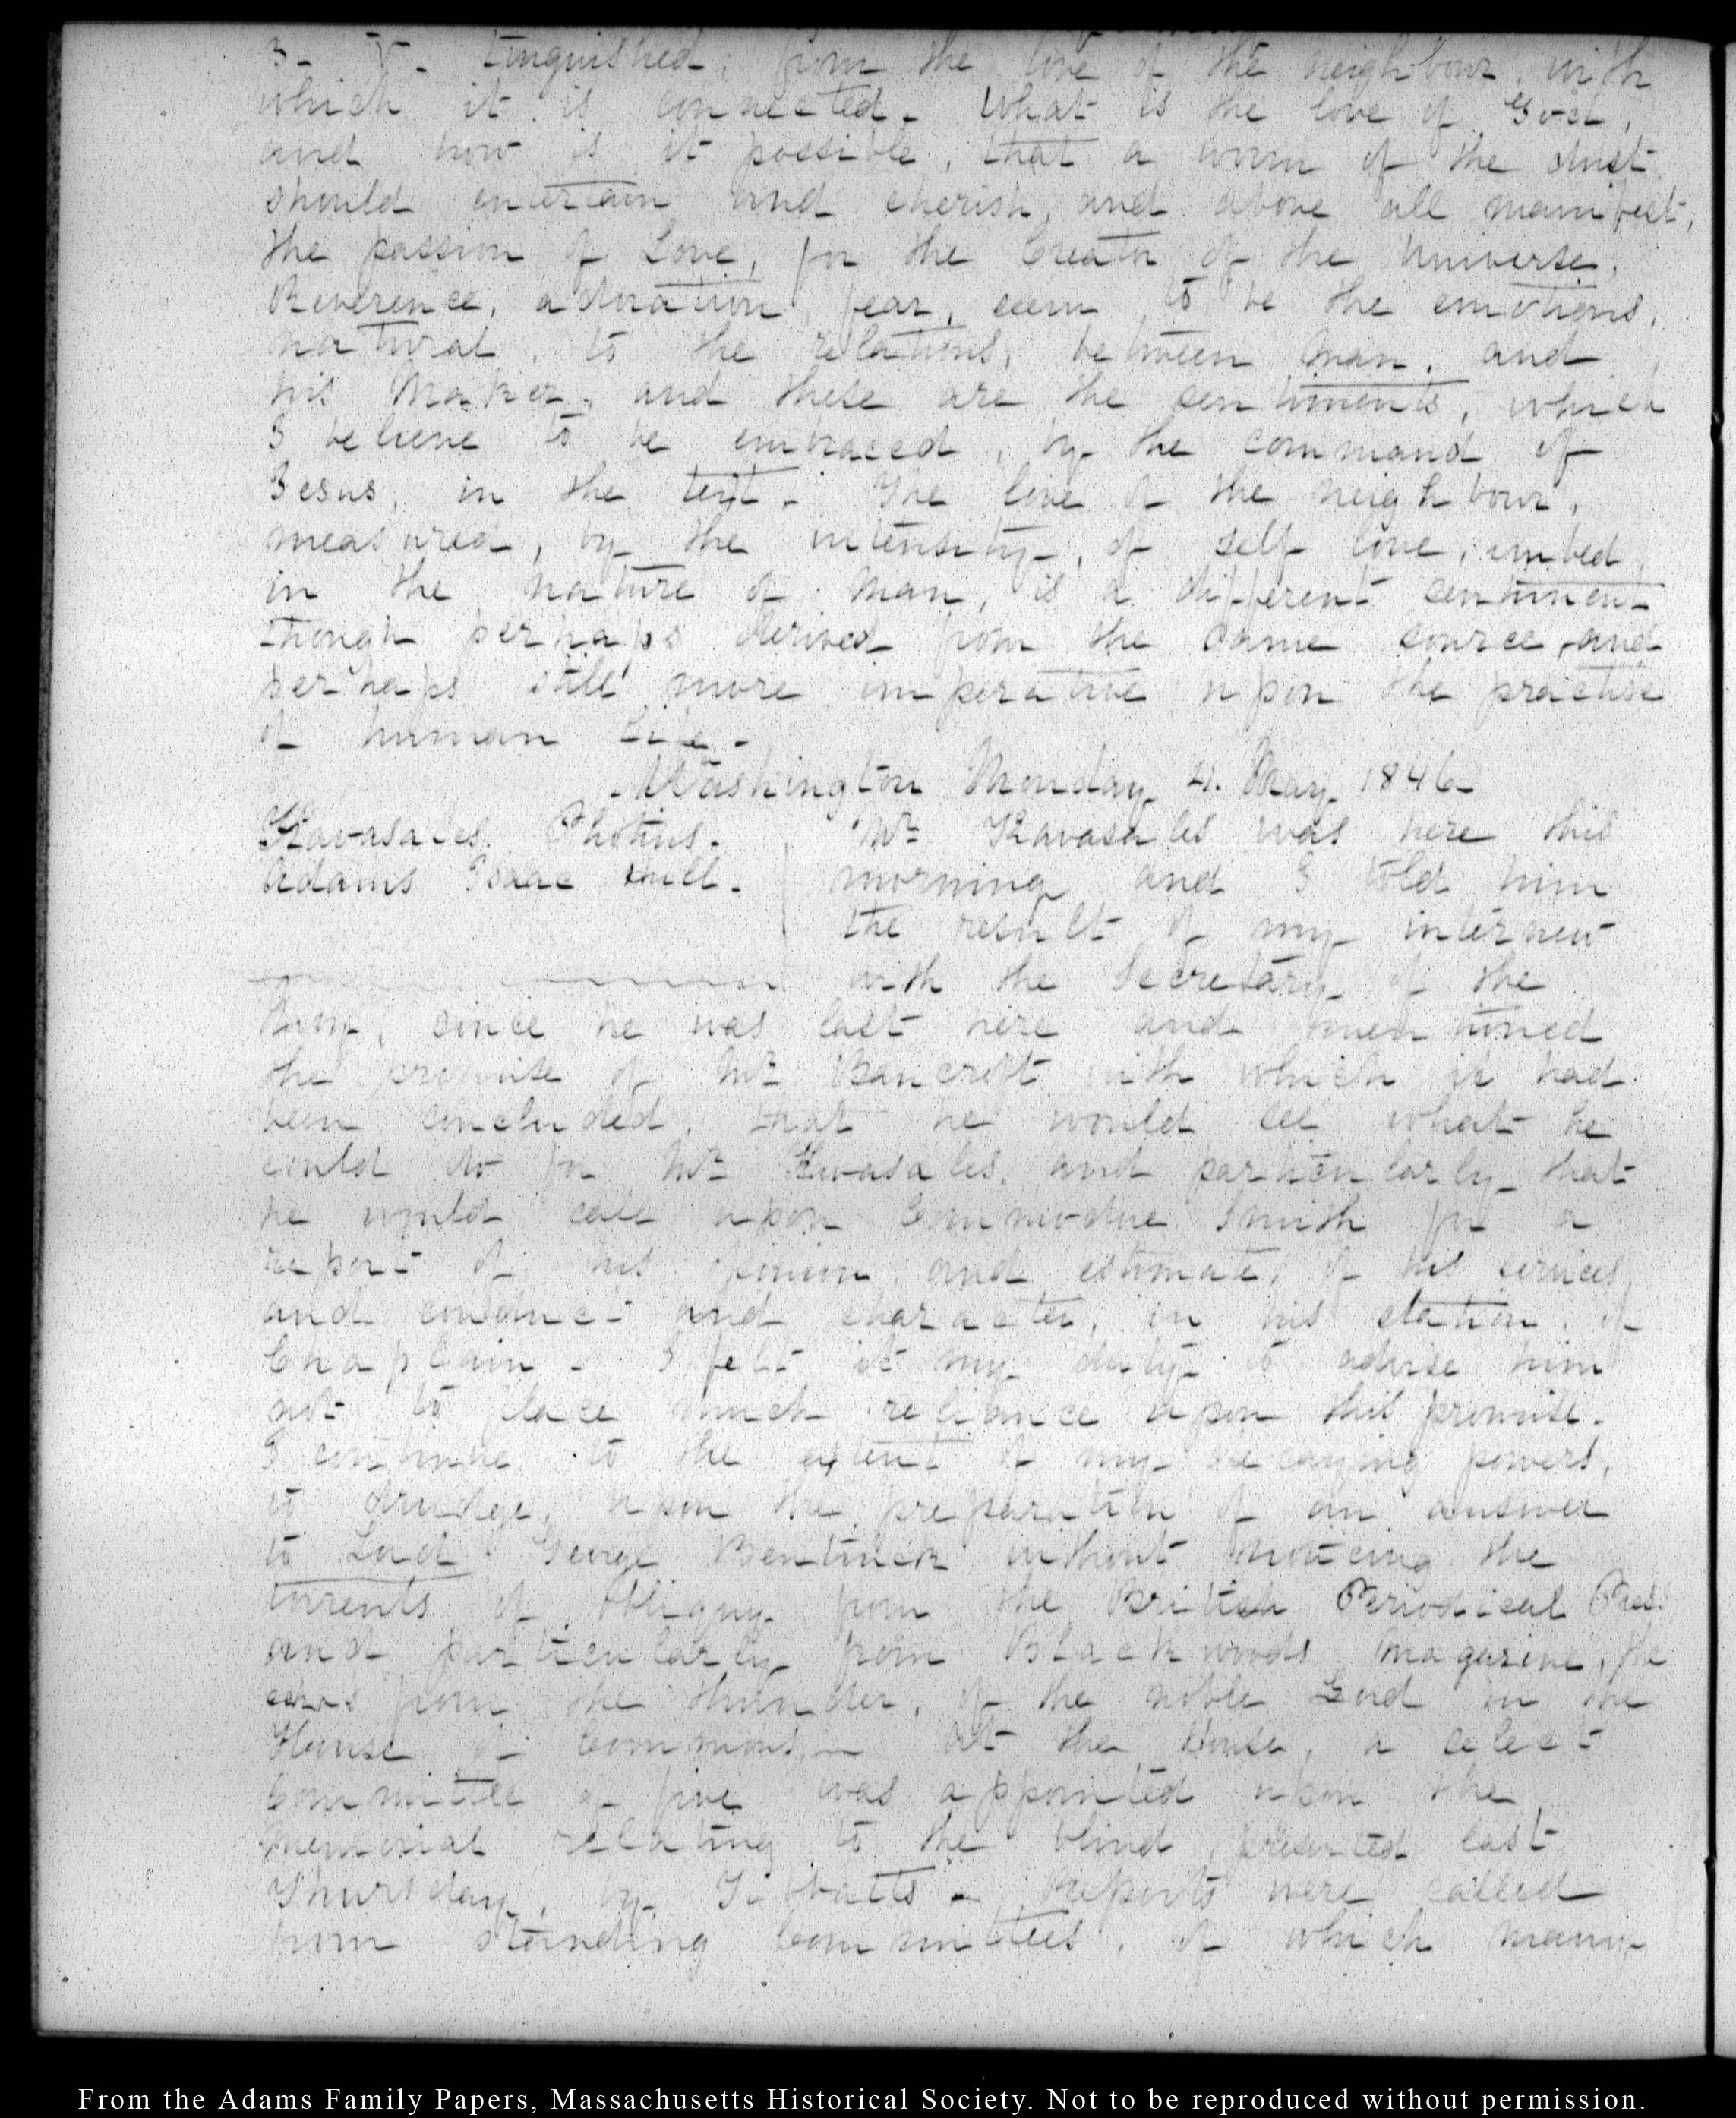 3. V. tinguished, from the love of the neighbour, with
which it is connected. What is the love of God,
and how is it possible, that a worm of the dust
should entertain and cherish, and above all manifest,
the passion of Love, for the Creator of the Universe.
Reverence, adoration, fear, seem to be the emotions,
natural, to the relations, between man, and
his Maker, and these are the sentiments, which
I believe to be embraced, by the command of
Jesus, in the text. The love of the neighbour,
measured, by the intensity, of self love, imbed
in the nature of man, is a different sentiment
though perhaps derived from the same source, and
perhaps still more imperative upon the practise
of human Life.
Washington Monday 4. May 1846
Kavasales Photius.
Adams Isaac Hull.
Mr Kavasales was here this
morning and I told him
the result of my interview
with the Secretary of the
Navy, since he was last here and mentioned
the promise of Mr Bancroft with which it had
been concluded, that he would see what he
could do for Mr Kavasales, and particularly that
he would call upon Commodore Smith for a
report of his opinion, and estimate, of his services,
and conduct and character, in his station, of
Chaplain. I felt it my duty to advise him
not to place much reliance upon this promise.
I continue to the extent of my decaying powers,
to drudge, upon the preparation of an answer
to Lord George Bentinck without noticing the
torrents of obloquy from the British Periodical Press
and particularly from Blackwoods Magazine, the
echos from the thunder, of the noble Lord in the
House of Commons. At the House, a select
Committee of five was appointed upon the
memorial relating to the blind, presented last
Thursday, by Tibbatts. Reports were called
from standing Committees, of which many
From the Adams Family Papers, Massachusetts Historical Society. Not to be reproduced without permission.